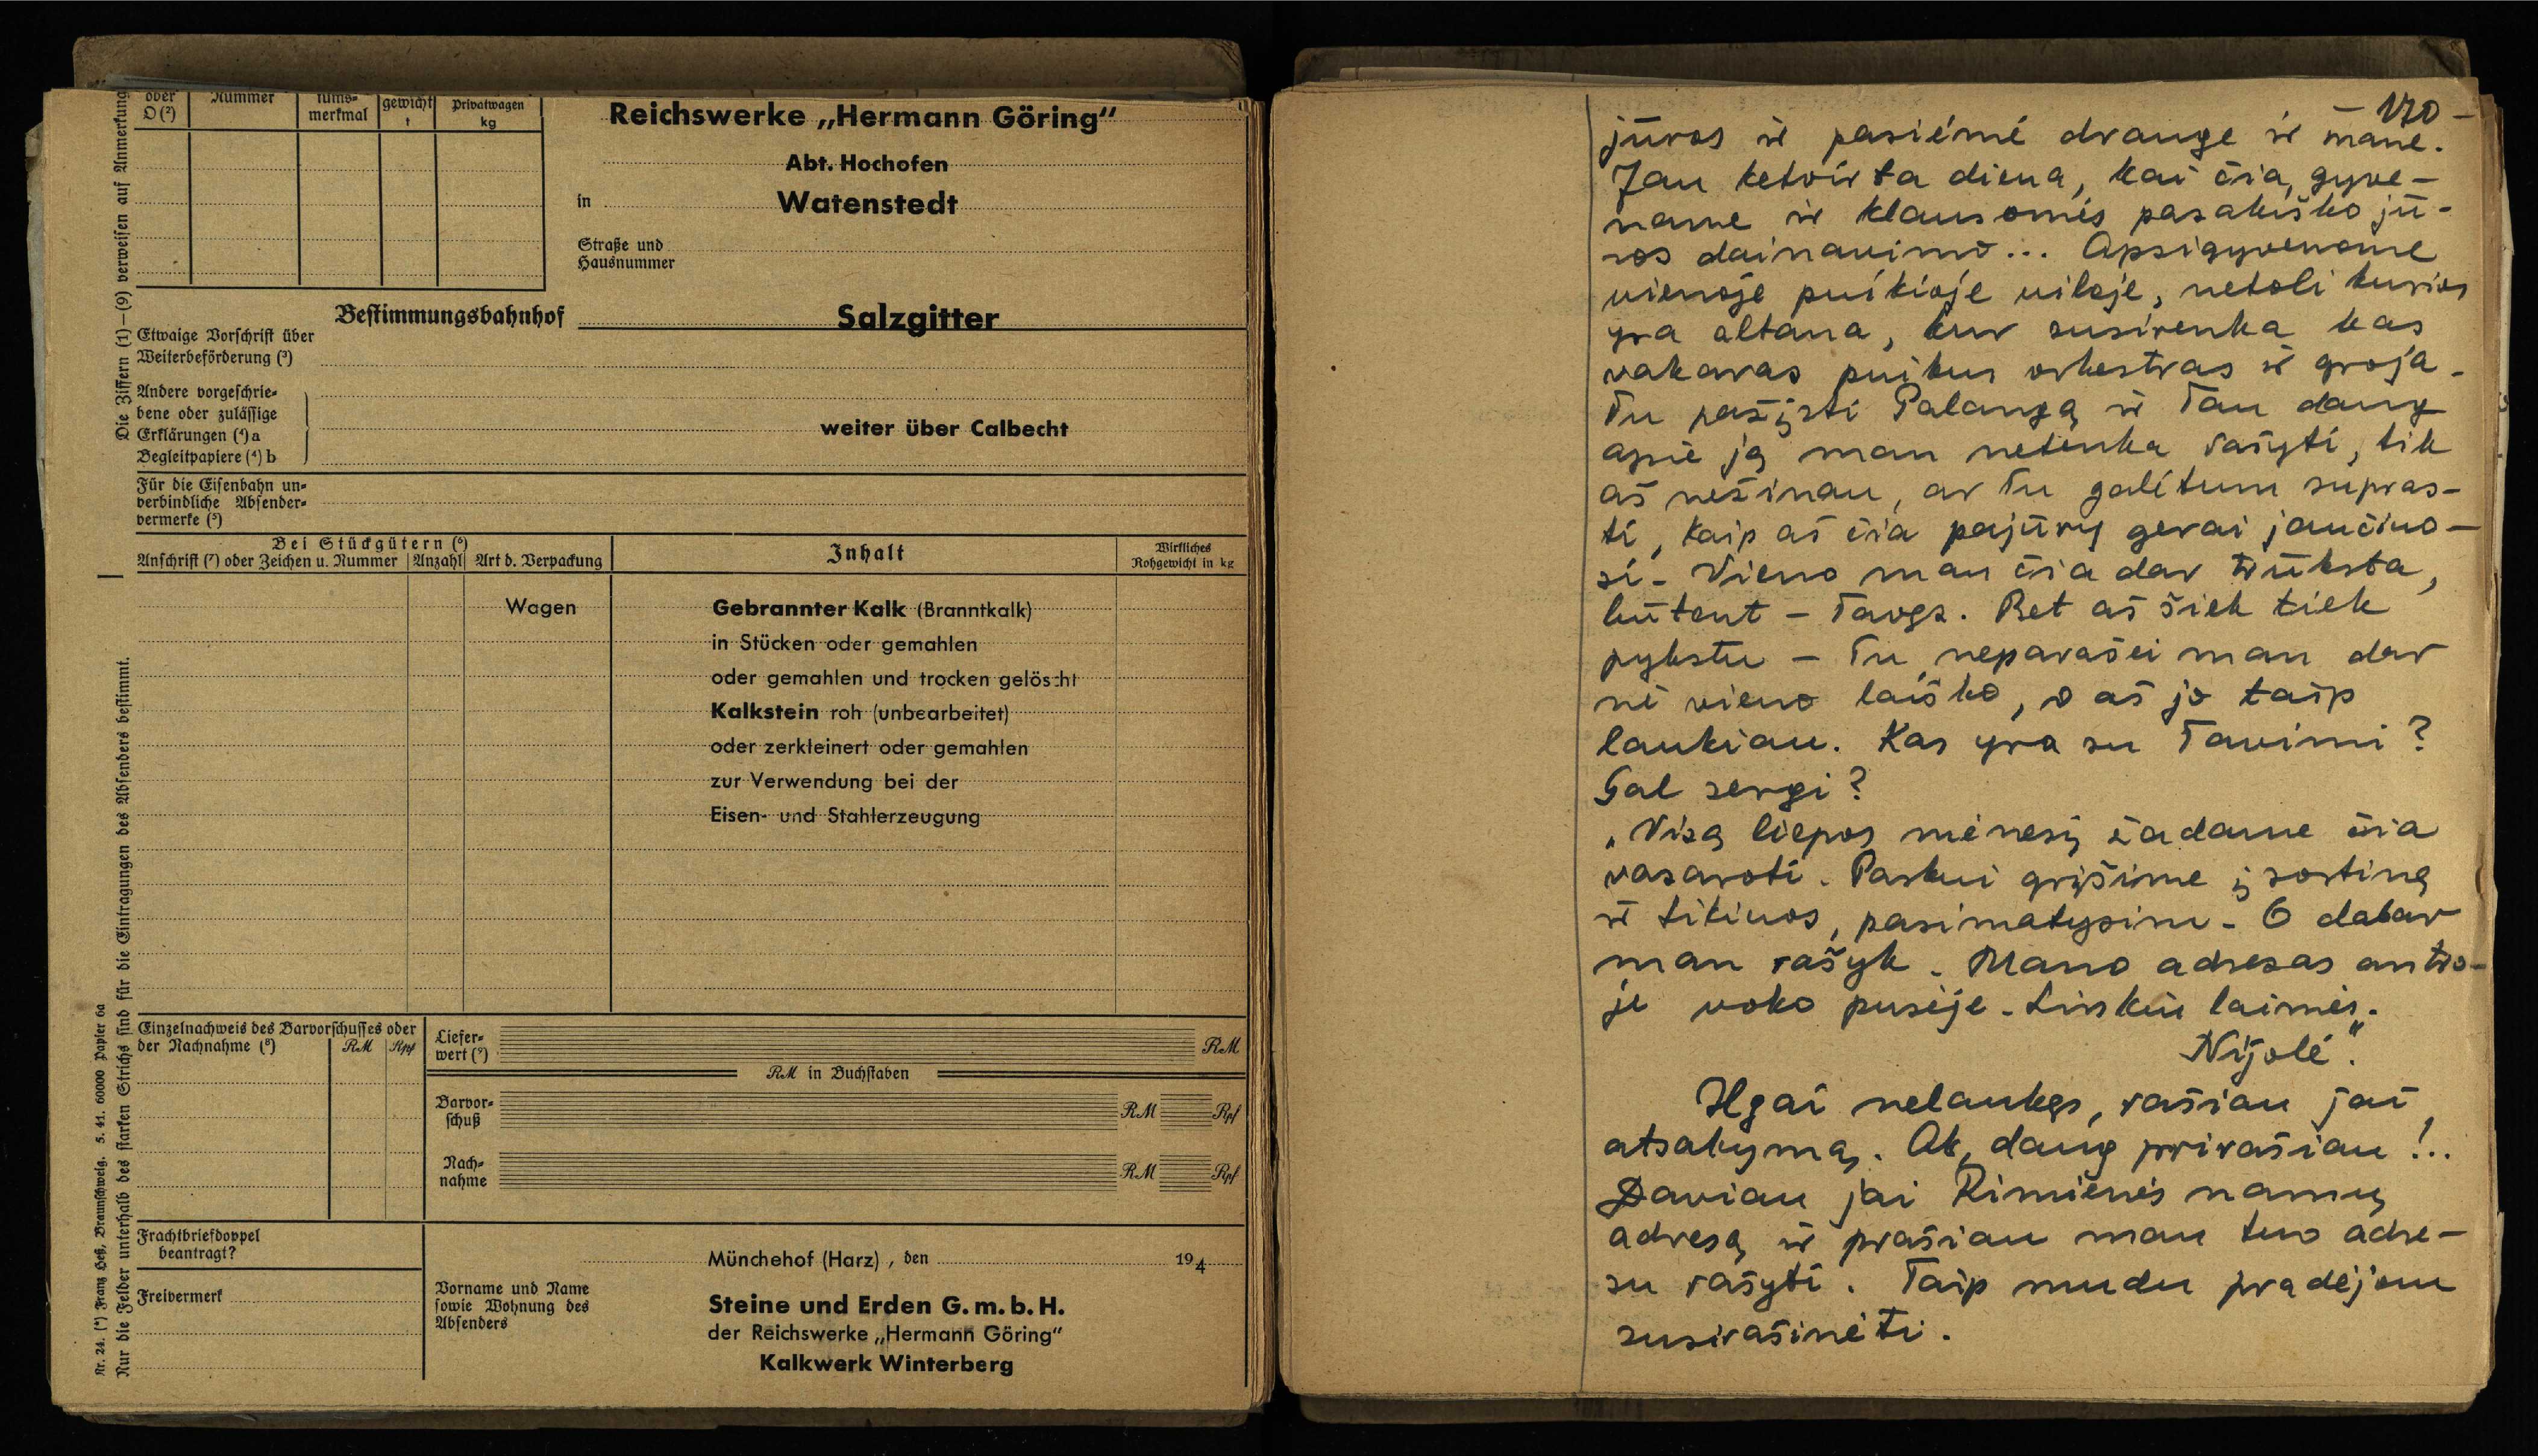 Die Ziffern (1)—(9) verweisen auf Anmerkung
oder
O (²)
Nummer
tums-
merkmal
gewicht
t
Privatwagen
kg
Reichswerke „Hermann Göring“
Abt. Hochofen
in
Watenstedt
Straße und
Hausnummer
Bestimmungsbahnhof
Salzgitter
Etwaige Vorschrift über
Weiterbeförderung (³)
Andere vorgeschrie-
bene oder zulässige
Erklärungen (⁴) a
Begleitpapiere (⁴) b
weiter über Calbecht
Für die Eisenbahn un-
verbindliche Absender-
vermerke (⁵)
Bei Stückgütern (⁶)
Anschrift (⁷) oder Zeichen u. Nummer
Anzahl
Art d. Verpackung
Inhalt
Wirkliches
Rohgewicht in kg
Wagen
Gebrannter Kalk (Branntkalk)
in Stücken oder gemahlen
oder gemahlen und trocken gelöscht
Kalkstein roh (unbearbeitet)
oder zerkleinert oder gemahlen
zur Verwendung bei der
Eisen- und Stahlerzeugung
Einzelnachweis des Barvorschusses oder
der Nachnahme (⁸)
RM
Rpf
Liefer-
wert (⁹)
RM
RM in Buchstaben
Barvor-
schuß
RM
Rpf
Nach-
nahme
RM
Rpf
Frachtbriefdoppel
beantragt?
Freivermerk
Münchehof (Harz), den
194
Vorname und Name
sowie Wohnung des
Absenders
Steine und Erden G.m.b.H.
der Reichswerke „Hermann Göring“
Kalkwerk Winterberg
Nr. 24. (*) Franz Heß, Braunschweig. 5. 41. 60000 Papier 6a
Nur die Felder unterhalb des starken Strichs sind für die Eintragungen des Absenders bestimmt.
– 170 –
jūros ir pasiėmė drauge ir mane.
Jau ketvirta diena, kai čia, gyve-
name ir klausomės pasakiško jū-
ros dainavimo... Apsigyvenome
vienoje puikioje viloje, netoli kurios
yra altana, kur susirenka kas
vakaras puikus orkestras ir groja.
Tu pažįsti Palangą ir Tau daug
apie ją man netenka rašyti, tik
aš nežinau, ar Tu galėtum supras-
ti, kaip aš čia pajūry gerai jaučiuo-
si. Vieno man čia dar trūksta,
būtent – Tavęs. Bet aš šiek tiek
pykstu – Tu neparašei man dar
nė vieno laiško, o aš jo taip
laukiau. Kas yra su Tavimi?
Gal sergi?
„Visą liepos mėnesį žadame čia
vasaroti. Paskui grįšime į sostinę
ir tikiuos, pasimatysim. O dabar
man rašyk. Mano adresas antro-
je voko pusėje. Linkiu laimės.
Nijolė“.
Ilgai nelaukęs, rašiau jai
atsakymą. Ak, daug prirašiau!..
Daviau jai Rimienės namų
adresą ir prašiau man tuo adre-
su rašyti. Taip mudu pradėjom
susirašinėti.